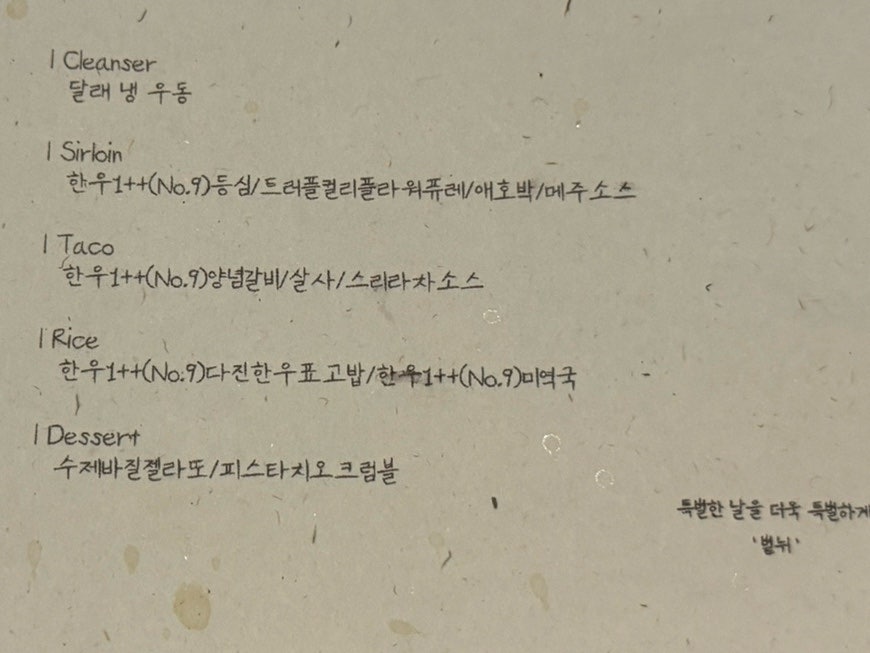 | Cleanser
달래 냉 우동
| Sirloin
한우1++(No.9)등심/트러플컬리플라워퓨레/애호박/메주소스
| Taco
한우1++(No.9)양념갈비/살사/스리라차소스
| Rice
한우1++(No.9)다진한우표고밥/한우1++(No.9)미역국
| Dessert
수제바질젤라또/피스타치오크럼블
특별한 날을 더욱 특별하게
'별뉘'